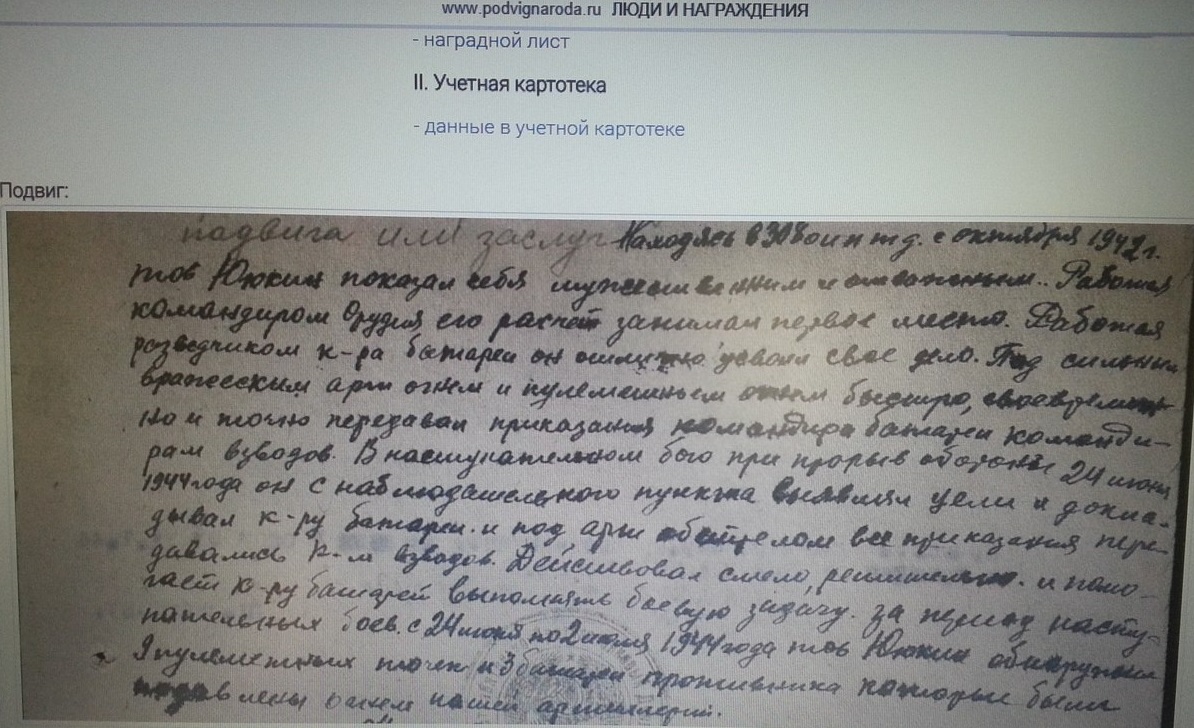 www.podvignaroda.ru ЛЮДИ И НАГРАЖДЕНИЯ
- наградной лист
II. Учетная картотека
- данные в учетной картотеке
Подвиг:
подвига или заслуг Находясь в с октября 1942г.
тов Июкин показал себя мужественным и отважным.. Работая
командиром Орудия его расчет занимал первое место. Работая
разведчиком к-ра батареи он отлично усвоил свое дело. Под сильным
вражесским арт огнем и пулеметным огнем быстро, своевремен-
но и точно передавал приказания командира батареи команди-
рам взводов. В наступательном бою при прорыв обороны 24 июня
1944 года он с наблюдательного пункта выявлял цели и докла-
дывал к-ру батареи. и под арт обстрелом все приказания пере-
давались к-м взводов. Действовал смело, решительно. и помо-
гает к-ру батарей выполнять боевую задачу. за период насту-
пательных боев. с 24 июня по 2 июля 1944 года тов обнаружил
9 пулеметных точек и 3 батареи противника которые были
подавлены огнем нашей артиллерий.